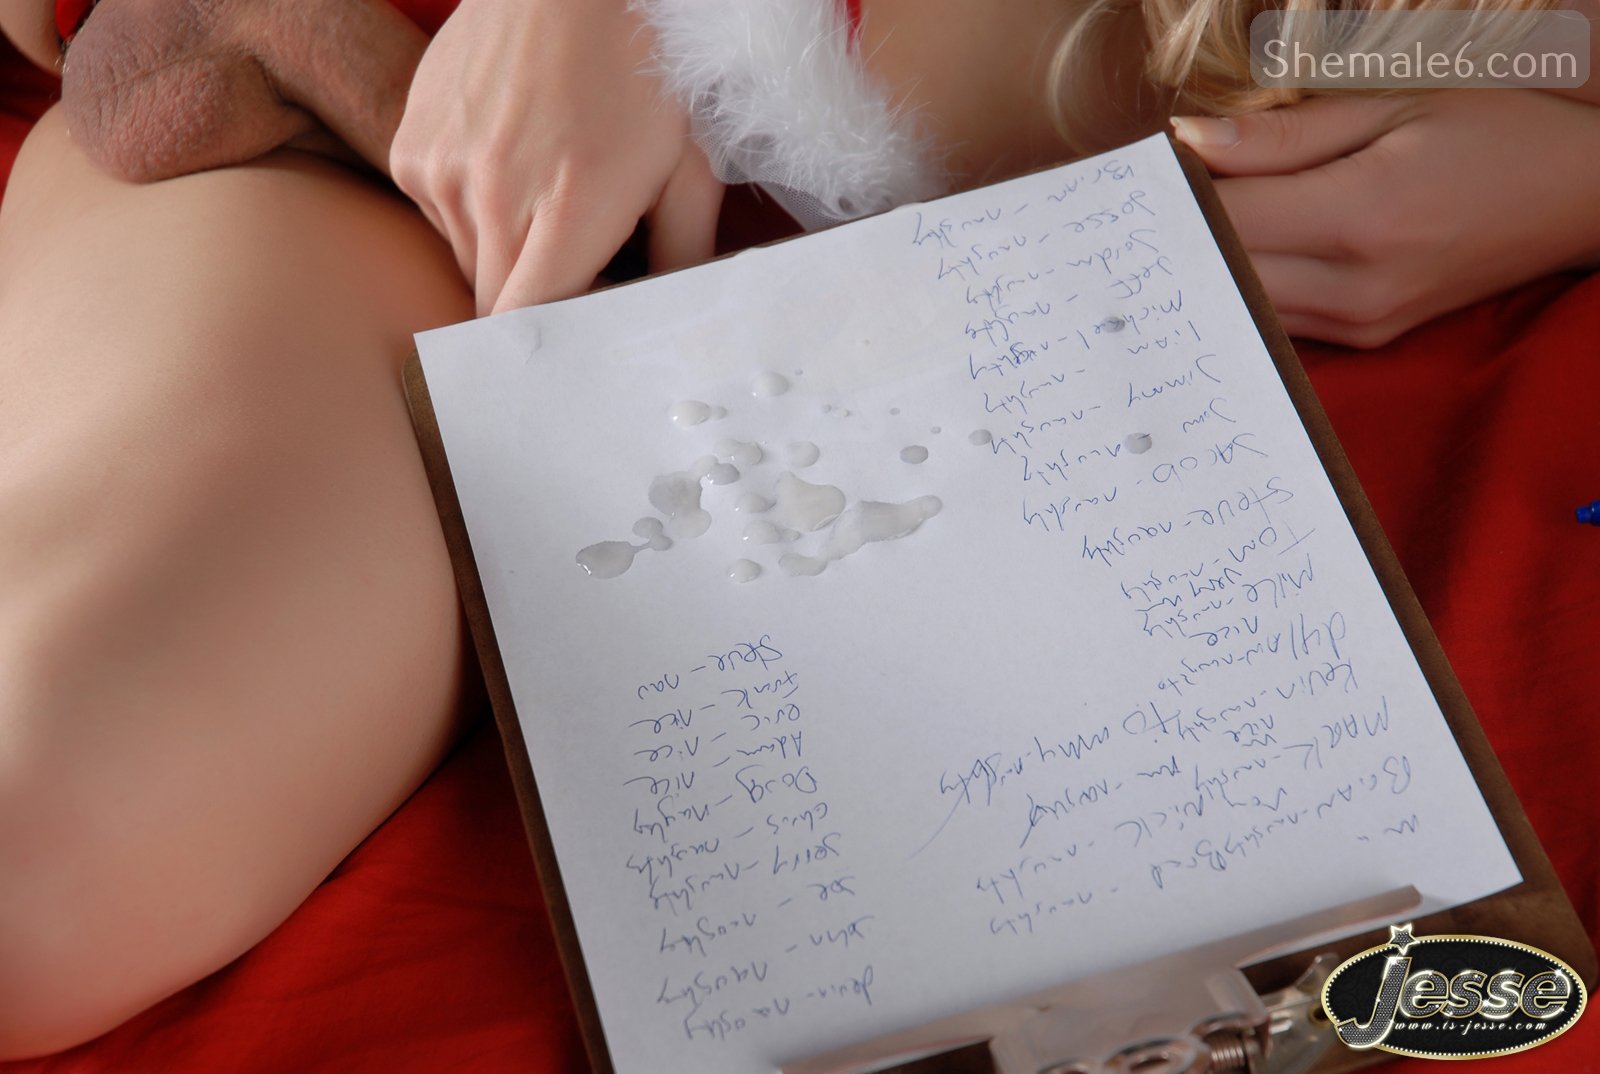 Shemale6.com
Devin - naughty
John - naughty
Joe - naughty
Jerry - naughty
Chris - naughty
Doug - naughty
Adam - nice
eric - nice
Frank - nice
Steve - nau
Brad - naughty
Nick - naughty
Brian - naughty
Mark - naughty
Kevin - naughty
nice
Mike - naughty
Tom - naughty
Steve - naughty
Jacob - naughty
Jim - naughty
Jimmy - naughty
Liam - naughty
Michael - naughty
Jeff - naughty
Jordan - naughty
Jesse - naughty
Brian - naughty
Jesse
www.ts-jesse.com